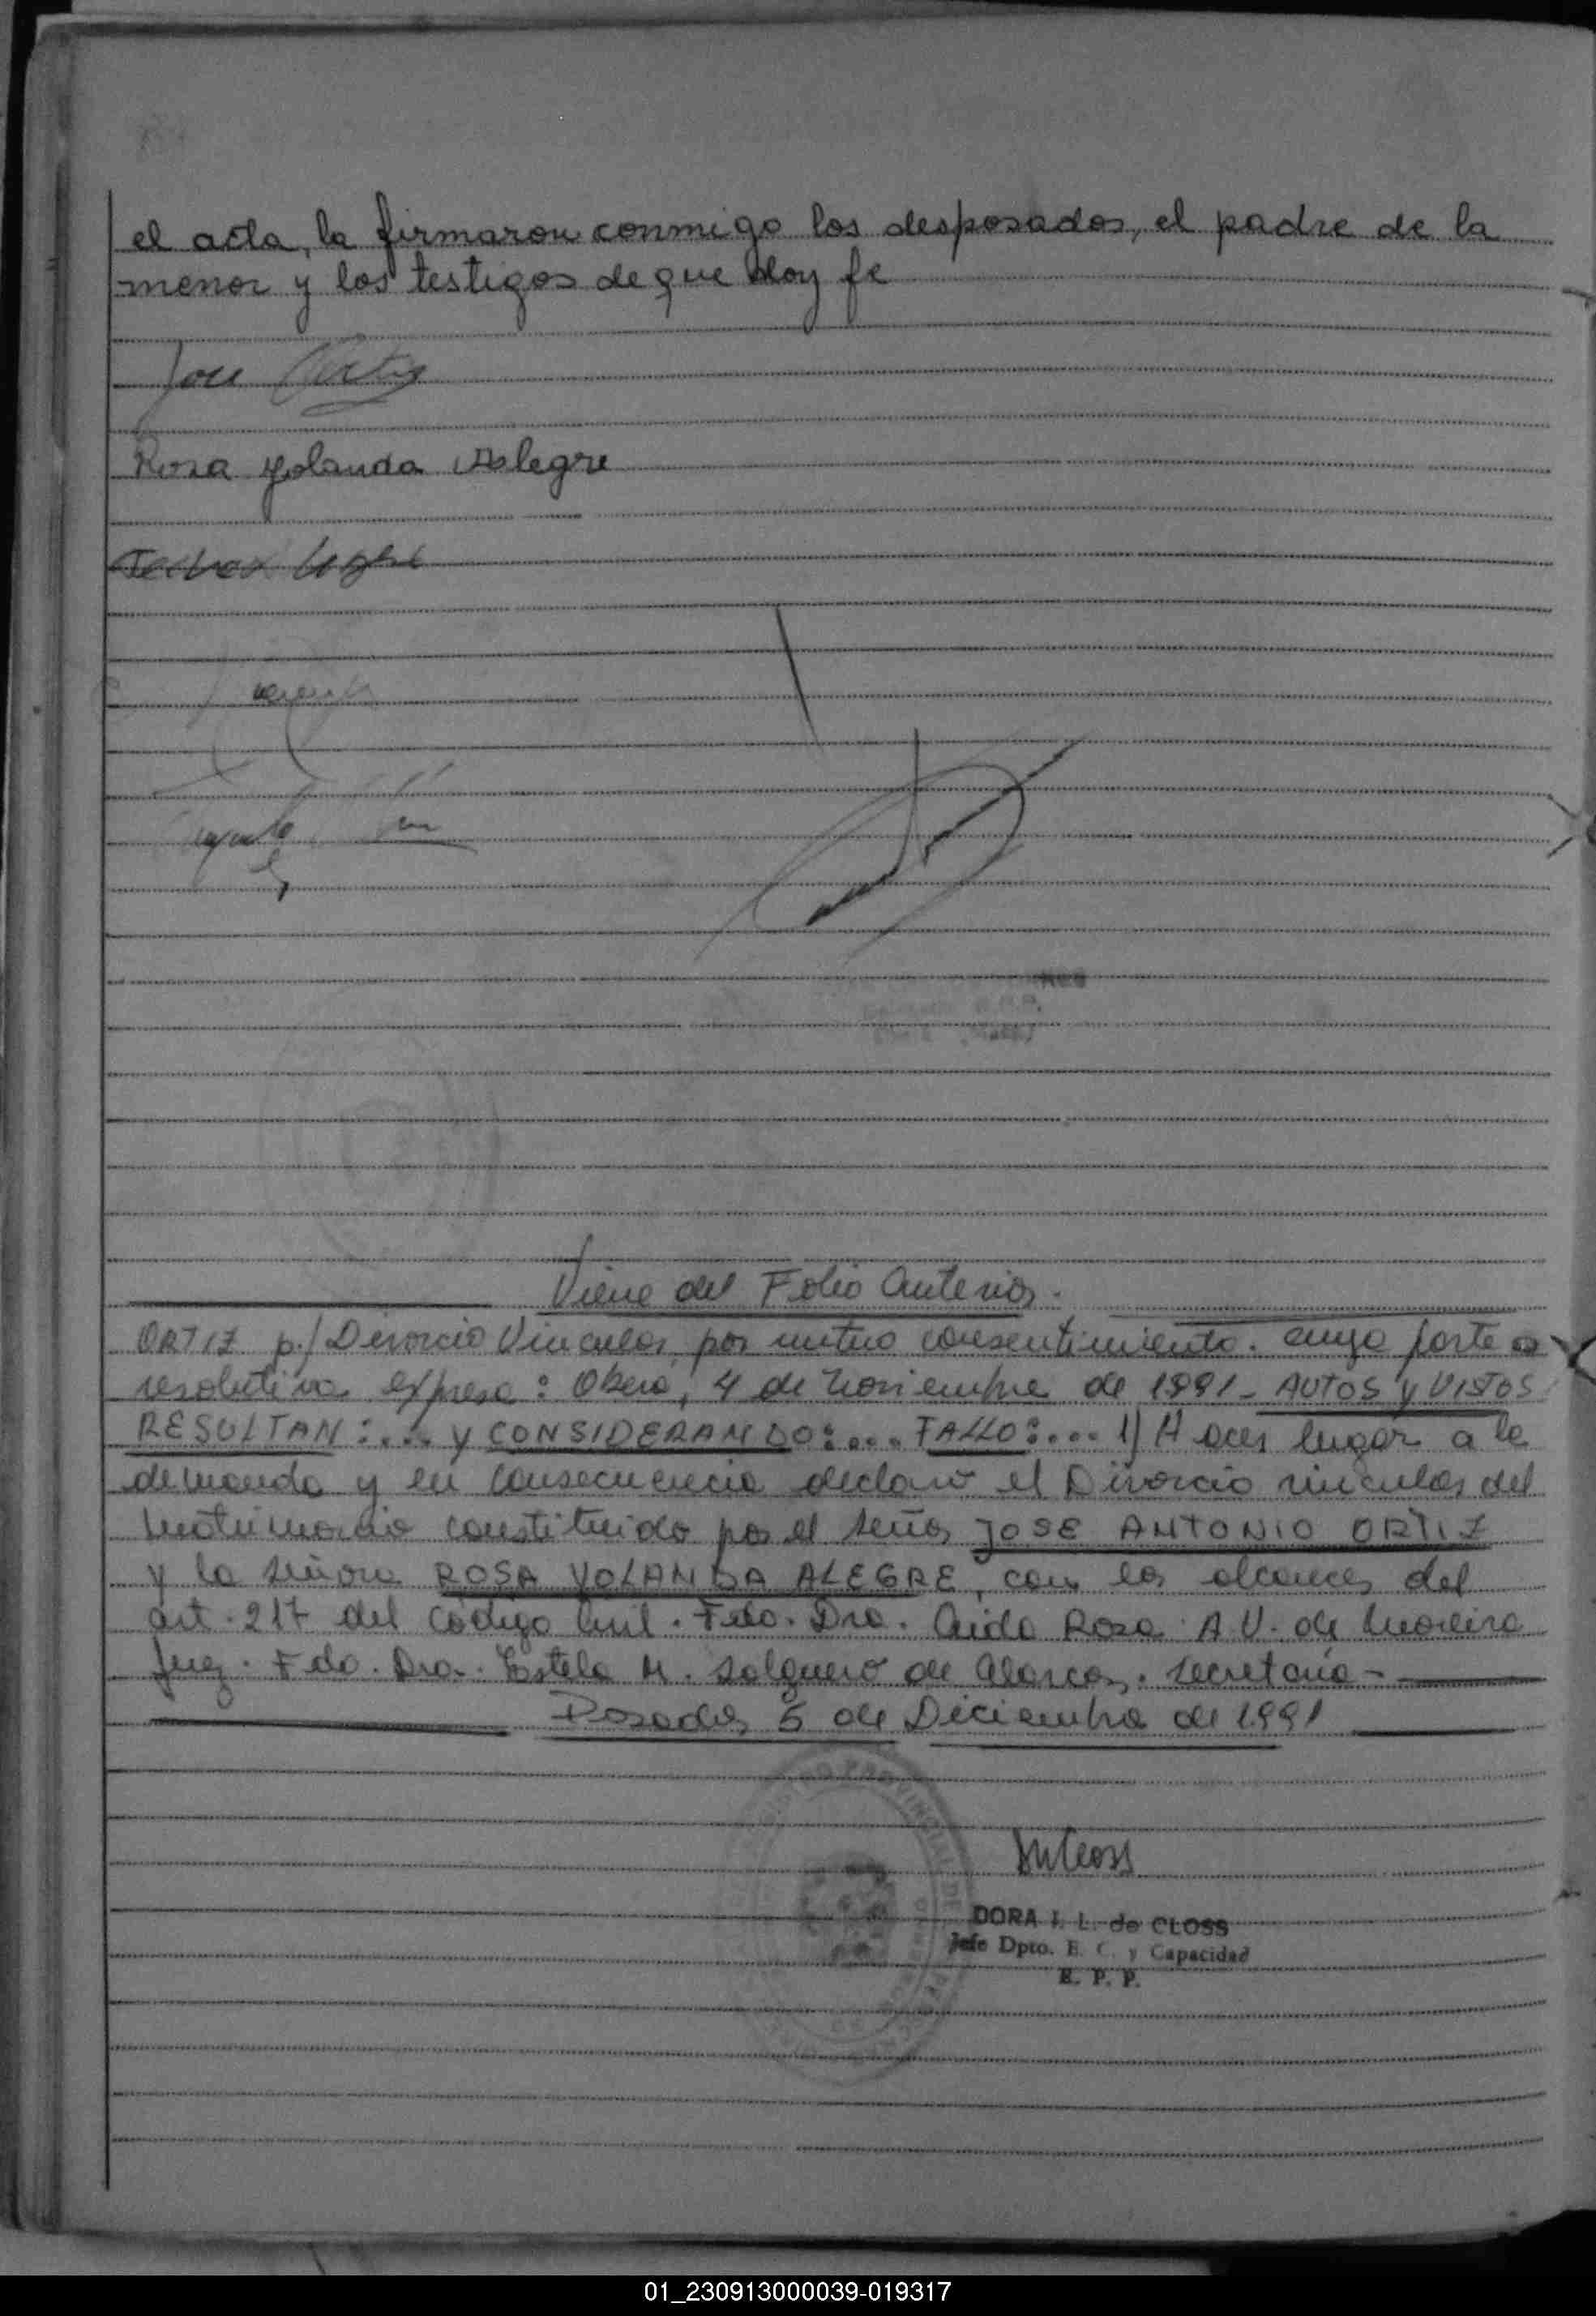 el acta, la firmaron conmigo los desposados, el padre de la
menor y los testigos de que doy fe
Jose Ortiz
Rosa Yolanda Alegre
Viene del Folio Anterior.
ORTIZ p./ Divorcio Vincular, por mutuo consentimiento. cuya parte
resolutiva expresa: Obera, 4 de Noviembre de 1991 - AUTOS y VISTOS
RESULTAN:... y CONSIDERANDO:... FALLO:... 1) Hacer lugar a la
demanda y en consecuencia declaro el Divorcio vincular del
Matrimonio constituido por el Señor JOSE ANTONIO ORTIZ
y la Señora ROSA YOLANDA ALEGRE, con los alcances del
art. 217 del Código Civil. Fdo. Dra. Aida Rosa A.V. de Moreira
Juez. Fdo. Dra. Estela M. Salguero de Alarcon. Secretaria -
Posadas, 5 de Diciembre de 1991
DORA I. L. de CLOSS
Jefe Dpto. E. C. y Capacidad
R. P. P.
01_230913000039-019317